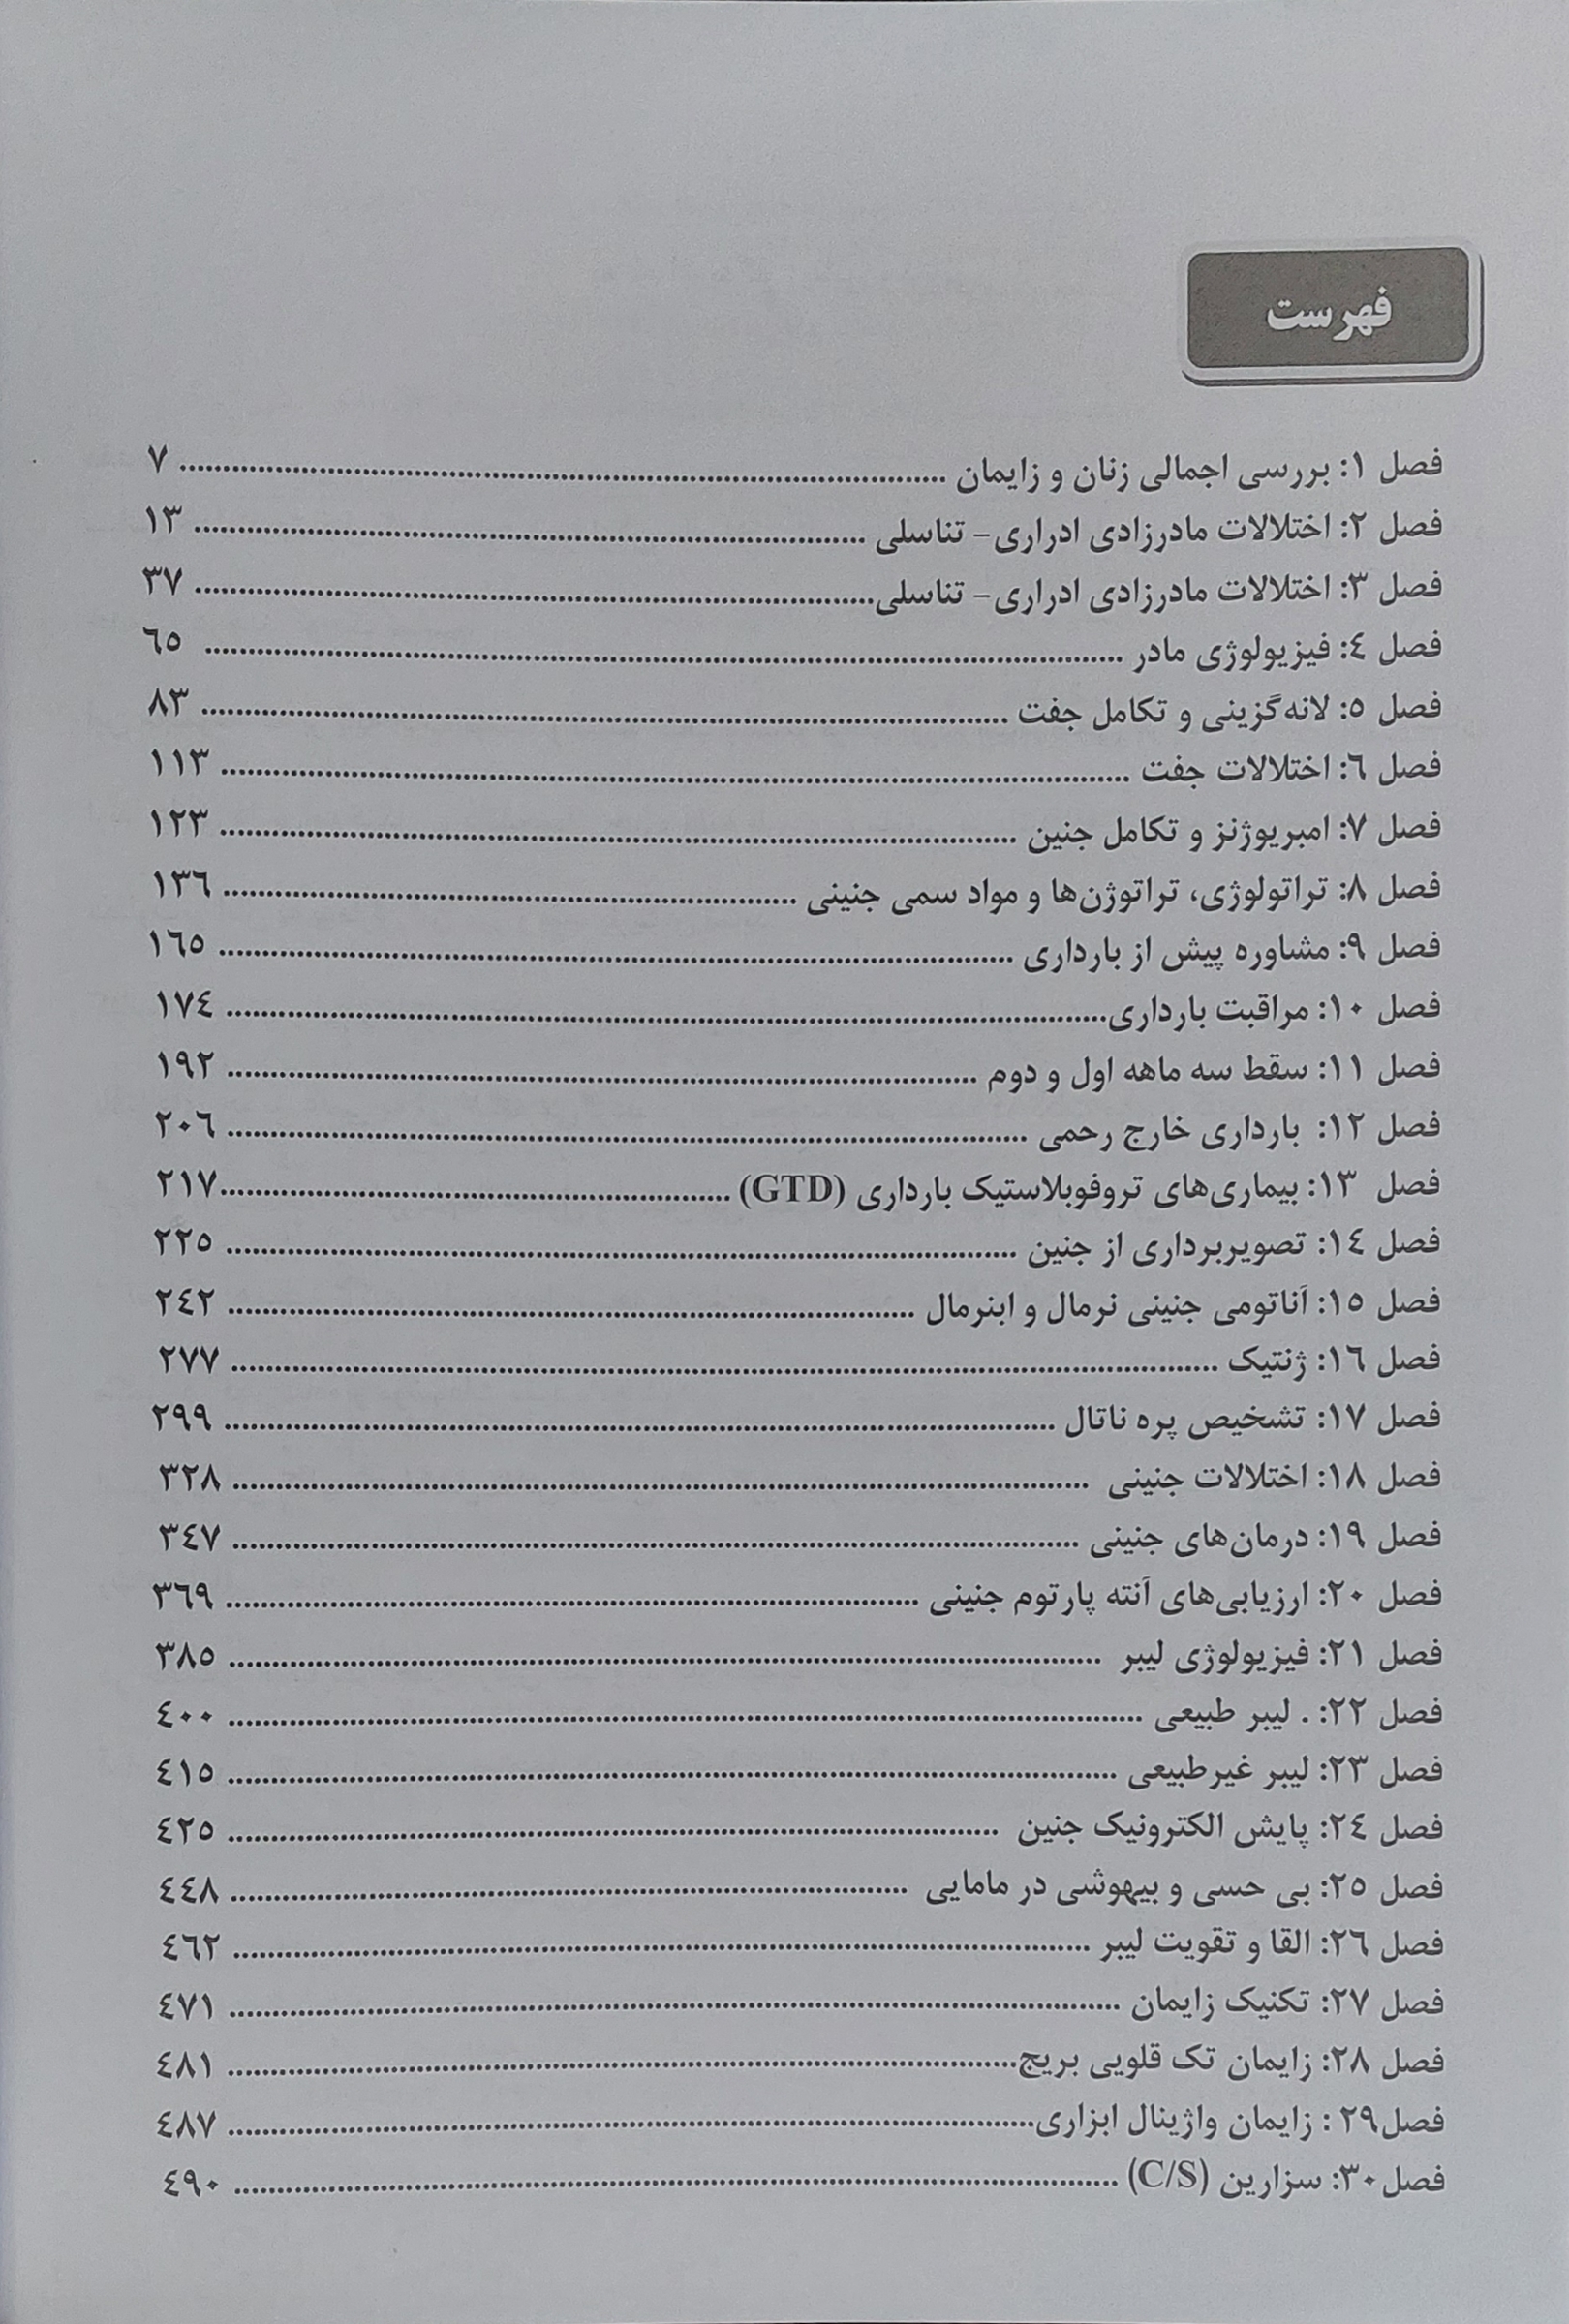 فهرست
فصل ۱: بررسی اجمالی زنان و زایمان ........ ۷
فصل ۲: اختلالات مادرزادی ادراری- تناسلی ........ ۱۳
فصل ۳: اختلالات مادرزادی ادراری- تناسلی........ ۳۷
فصل ٤: فیزیولوژی مادر ........ ٦٥
فصل ٥: لانه‌گزینی و تکامل جفت ........ ۸۳
فصل ٦: اختلالات جفت ........ ۱۱۳
فصل ۷: امبریوژنز و تکامل جنین ........ ۱۲۳
فصل ۸: تراتولوژی، تراتوژن‌ها و مواد سمی جنینی ........ ۱۳٦
فصل ۹: مشاوره پیش از بارداری ........ ۱٦٥
فصل ۱۰: مراقبت بارداری........ ۱۷٤
فصل ۱۱: سقط سه ماهه اول و دوم ........ ۱۹۲
فصل ۱۲: بارداری خارج رحمی ........ ۲۰٦
فصل ۱۳: بیماری‌های تروفوبلاستیک بارداری (GTD) ........ ۲۱۷
فصل ۱٤: تصویربرداری از جنین ........ ۲۲٥
فصل ۱٥: آناتومی جنینی نرمال و ابنرمال ........ ۲٤۲
فصل ۱٦: ژنتیک ........ ۲۷۷
فصل ۱۷: تشخیص پره ناتال ........ ۲۹۹
فصل ۱۸: اختلالات جنینی ........ ۳۲۸
فصل ۱۹: درمان‌های جنینی ........ ۳٤۷
فصل ۲۰: ارزیابی‌های آنته پارتوم جنینی ........ ۳٦۹
فصل ۲۱: فیزیولوژی لیبر ........ ۳۸٥
فصل ۲۲: . لیبر طبیعی ........ ٤۰۰
فصل ۲۳: لیبر غیرطبیعی ........ ٤۱٥
فصل ۲٤: پایش الکترونیک جنین ........ ٤۲٥
فصل ۲٥: بی حسی و بیهوشی در مامایی ........ ٤٤۸
فصل ۲٦: القا و تقویت لیبر ........ ٤٦۲
فصل ۲۷: تکنیک زایمان ........ ٤۷۱
فصل ۲۸: زایمان تک قلویی بریچ........ ٤۸۱
فصل۲۹ : زایمان واژینال ابزاری........ ٤۸۷
فصل۳۰: سزارین (C/S) ........ ٤۹۰